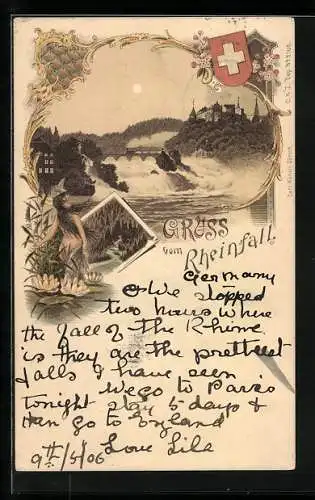 GRUSS
vom Rheinfall.
Germany
We stopped
two hours where
the fall of the Rhine
is they are the prettiest
falls I have seen
We go to Paris
tonight stay 5 days &
then go to England
Love Lila
9th/5/06